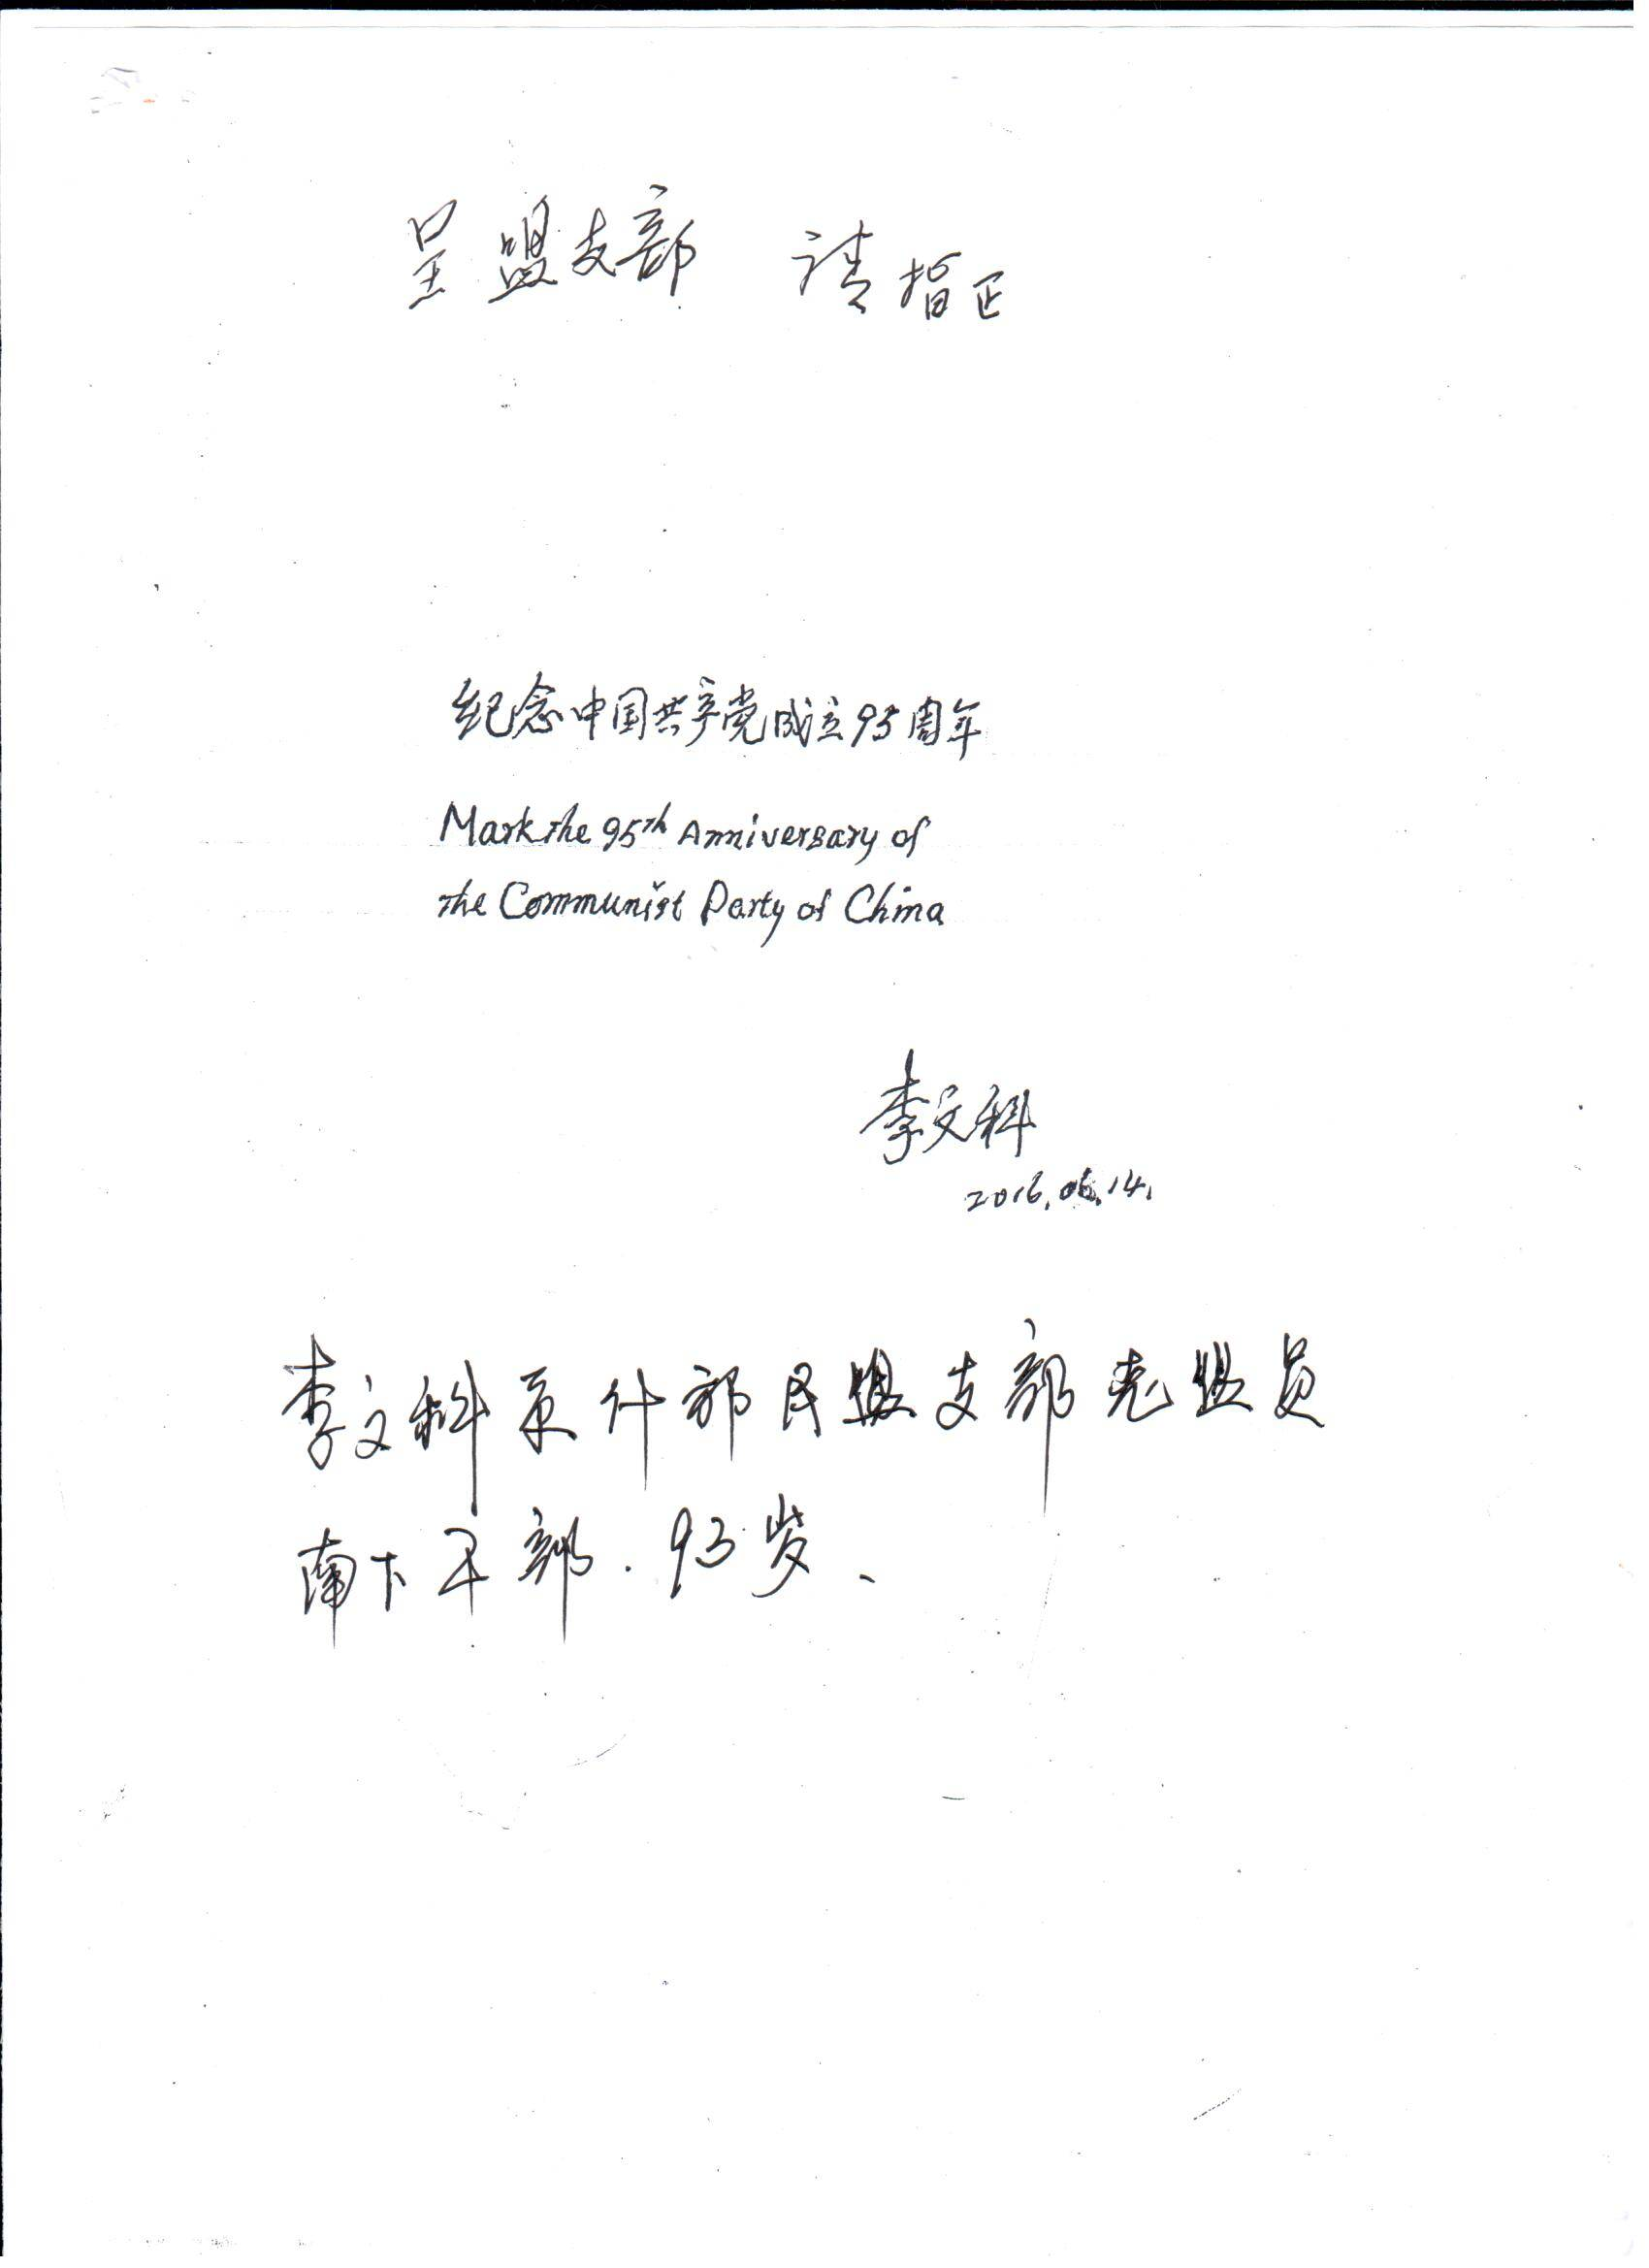 呈盟支部 请指正
纪念中国共产党成立95周年
Mark the 95th Anniversary of
the Communist Party of China
李文科
2016.06.14.
李文科系什邡民盟支部老盟员
南下干部.93岁、